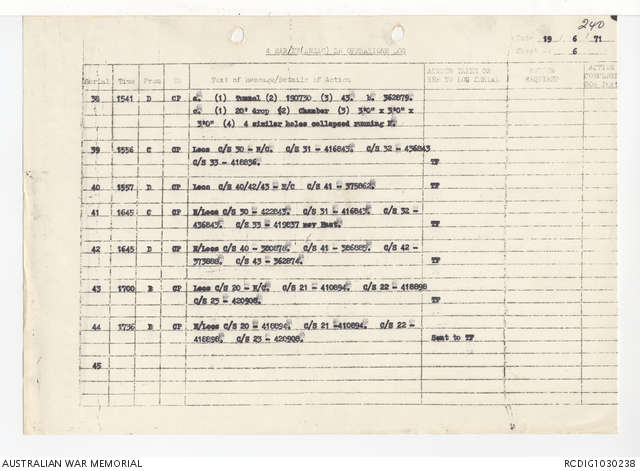 240
Date 19 6 71
Sheet No 6
4 RAR/NZ (ANZAC) BN OPERATIONS LOG
Serial Time From To Text of Message/Details of Action ACTION TAKEN OR REF TO LOG SERIAL ACTION REQUIRED ACTION
38 1541 D CP a. (1) Tunnel (2) 190730 (3) 43. b. 362879.
c. (1) 20' drop (2) Chamber (3) 3'0" x 3'0" x
3'0" (4) 4 similar holes collapsed running N.
39 1556 C CP Locs C/S 30 - N/C. C/S 31 - 416843. C/S 32 - 436843
C/S 33 - 418836. TF
40 1557 D CP Locs C/S 40/42/43 - N/C C/S 41 - 375862. TF
41 1645 C CP N/Locs C/S 30 - 422843. C/S 31 - 416843. C/S 32 -
436843. C/S 33 - 419837 mov East. TF
42 1645 D CP N/Locs C/S 40 - 380878. C/S 41 - 386885. C/S 42 -
373888. C/S 43 - 362874. TF
43 1700 B CP Locs C/S 20 - N/C. C/S 21 - 410894. C/S 22 - 418898
C/S 23 - 420908. TF
44 1736 B CP N/Locs C/S 20 - 418894. C/S 21 -410894. C/S 22 -
418898. C/S 23 - 420908. Sent to TF
45
AUSTRALIAN WAR MEMORIAL
RCDIG1030238